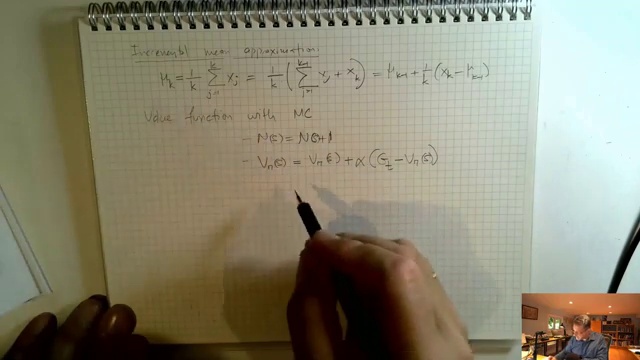 Incremental mean approximation
μ_k = 1/k ∑_{j=1}^{k} x_j = 1/k ( ∑_{j=1}^{k-1} x_j + x_k ) = μ_{k-1} + 1/k ( x_k − μ_{k-1} )
Value function with MC
- N(s) = N(s)+1
- V_π(s) = V_π(s) + α ( G_t − V_π(s) )